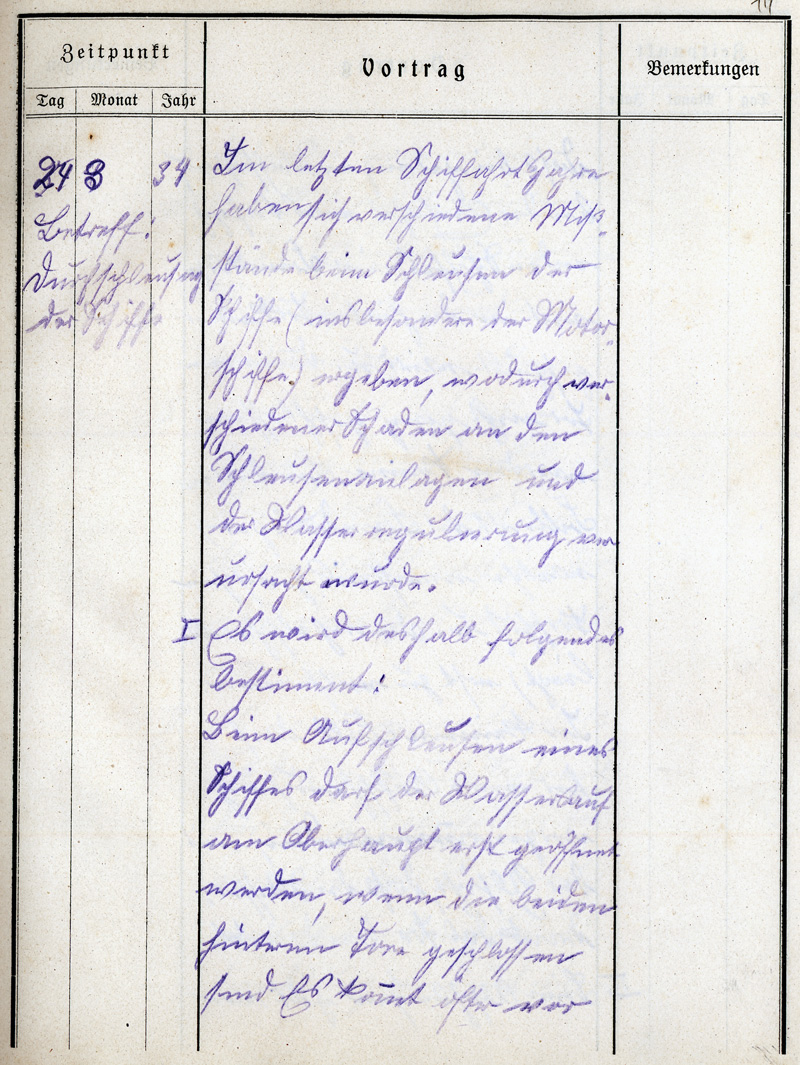 14
Zeitpunkt
Vortrag
Bemerkungen
Tag Monat Jahr
24 3 34
Betreff:
Durchschleusung
der Schiffe
Im letzten Schiffahrtsjahre
haben sich verschiedene Miß-
stände beim Schleusen der
Schiffe (insbesondere der Motor-
schiffe) ergeben, wodurch ver-
schiedener Schaden an den
Schleusenanlagen und
der Wasserregulierung ver
ursacht wurde.
I Es wird deshalb folgendes
bestimmt:
Beim Aufschleusen eines
Schiffes darf der Wasserlauf
am Oberhaupt erst geöffnet
werden, wenn die beiden
hinteren Tore geschlossen
sind Es kom̄t öfter vor